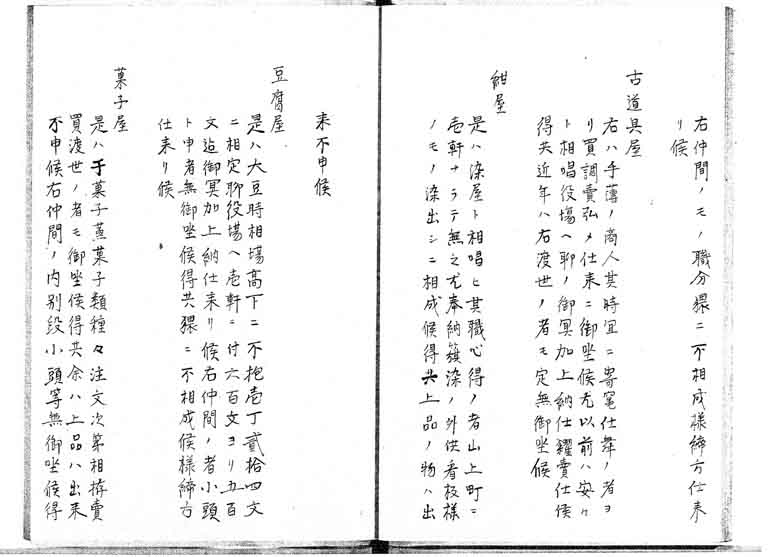 右仲間ノモノ職分猥ニ不相成様締方仕来
リ候
古道具屋
右ハ手薄ノ商人其時宜ニ寄竃仕舞ノ者ヨ
リ買調賣弘メ仕来ニ御坐候尤以前ハ安々
ト相唱役場ヘ聊ノ御冥加上納仕糶賣仕候
得共近年ハ右渡世ノ者モ定無御坐候
紺屋
是ハ染屋ト相唱ヒ其職心得ノ者山上町ニ
壱軒ナラテ無之尤奉納籏染ノ外供看板様
ノモノ染出シニ相成候得共上品ノ物ハ出
来不申候
豆腐屋
是ハ大豆時相場高下ニ不抱壱丁貳拾四文
ニ相定聊役場ヘ壱軒ニ付六百文ヨリ五百
文迄御冥加上納仕来リ候右仲間ノ者小頭
ト申者無御坐候得共猥ニ不相成候様締方
仕来リ候
菓子屋
是ハ干菓子蒸菓子類種々注文次第相拵賣
買渡世ノ者モ御坐候得共余ハ上品ハ出来
不申候右仲間ノ内別段小頭等無御坐候得